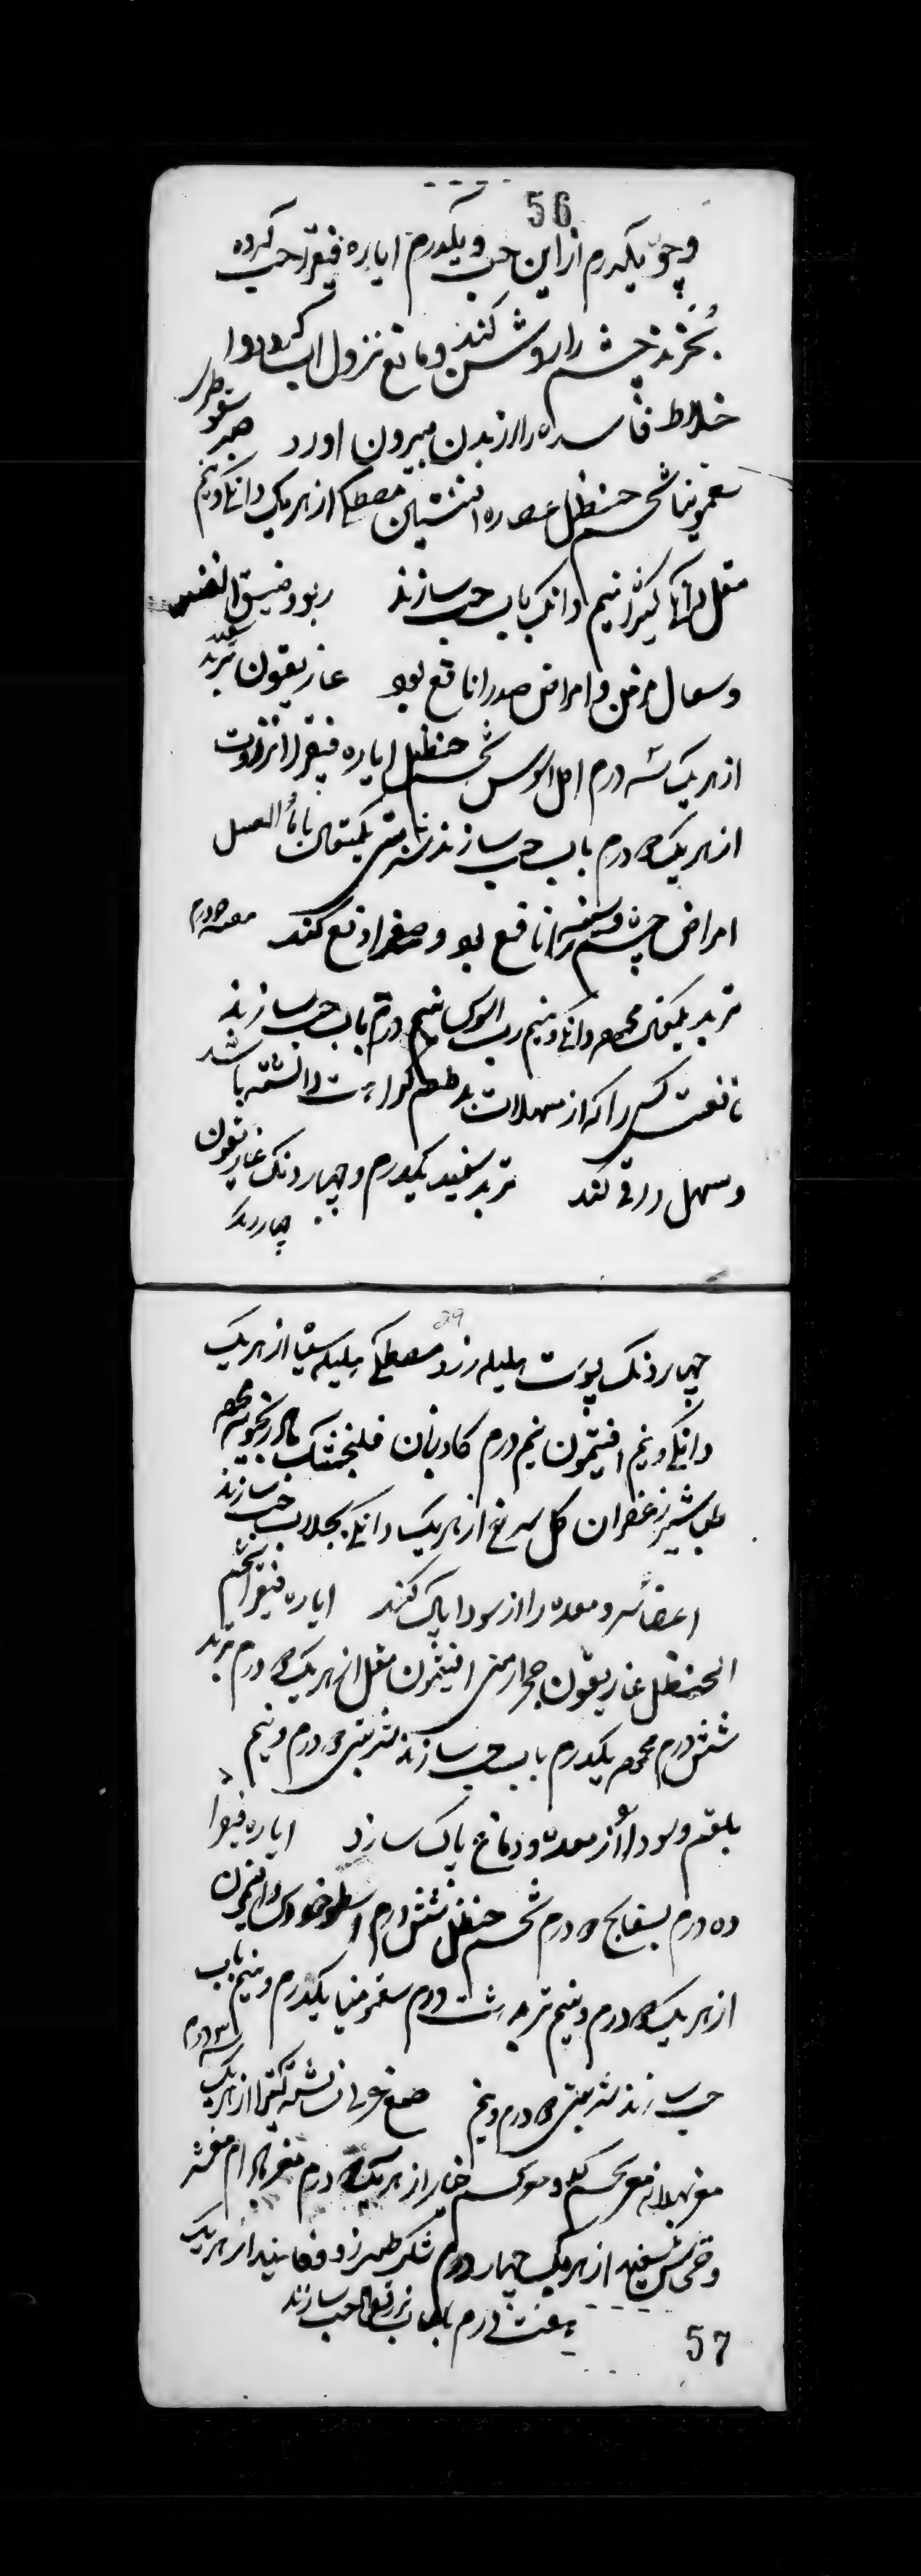 56
و چون یکدرم از این حب و یکدرم ایاره فیقرا حب کرده
بخورند چشم را روشن کند و مانع نزول آب گردد و ا
خلاط فاسده را از بدن بیرون اورد صبر سقوطری
سقمونیا شحم حنظل عصاره افسنتین مصطکی از هریک دانکی و نیم
مقل کتیرا نیم دانک باب حب سازند ربو و ضیق النفس
و سعال مزمن و امراض صدر را نافع بود غاریقون تربد سفید
از هریک سه درم اصل السوس شحم حنظل ایاره فیقرا انزروت
از هریک درم باب حب سازند شربتی یکمثقال با ماء العسل
امراض چشم و سر را نافع بود و صفرا دفع کند
تربد یکمثقال محموده دانکی و نیم رب السوس نیم درم باب حب سازند
نافعست کسی را که از مسهلات بدطعم کراهت داشته باشد
و سهل رقی کند تربد سفید یکدرم و چهار دنک غاریقون
چهار دنک
29
چهار دنک پوست هلیله زرد مصطکی هلیله سیاه از هریک
دانکی و نیم افتیمون نیم درم کاوزبان فلنجمشک بادرنجبویه
طباشیر زعفران کل سرخ از هریک دانکی بجلاب حب سازند
اعضا سر و معده را از سودا پاک کند ایاره فیقرا شحم
الحنظل غاریقون حجر ارمنی افتیمون مقل از هریک درم تربد
شش درم محموده یکدرم باب حب سازند شربتی درم و نیم
بلغم و سودا از معده و دماغ پاک سازد ایاره فیقرا
ده درم بسفایج درم شحم حنظل شش درم اسطوخودوس و افتیمون
از هریک درم و نیم تربد درم سقمونیا یکدرم و نیم باب
حب سازند شربتی درم و نیم صمغ عربی نشاسته کتیرا از هریک سه درم
مغز بهدانه مغز تخم کدو و تخم خیار از هریک درم مغز بادام مقشر
و خشخاش سفید از هریک چهار درم شکر طبرزد و فانید از هریک
هفت درم بلعاب بزرقطونا حب سازند
57